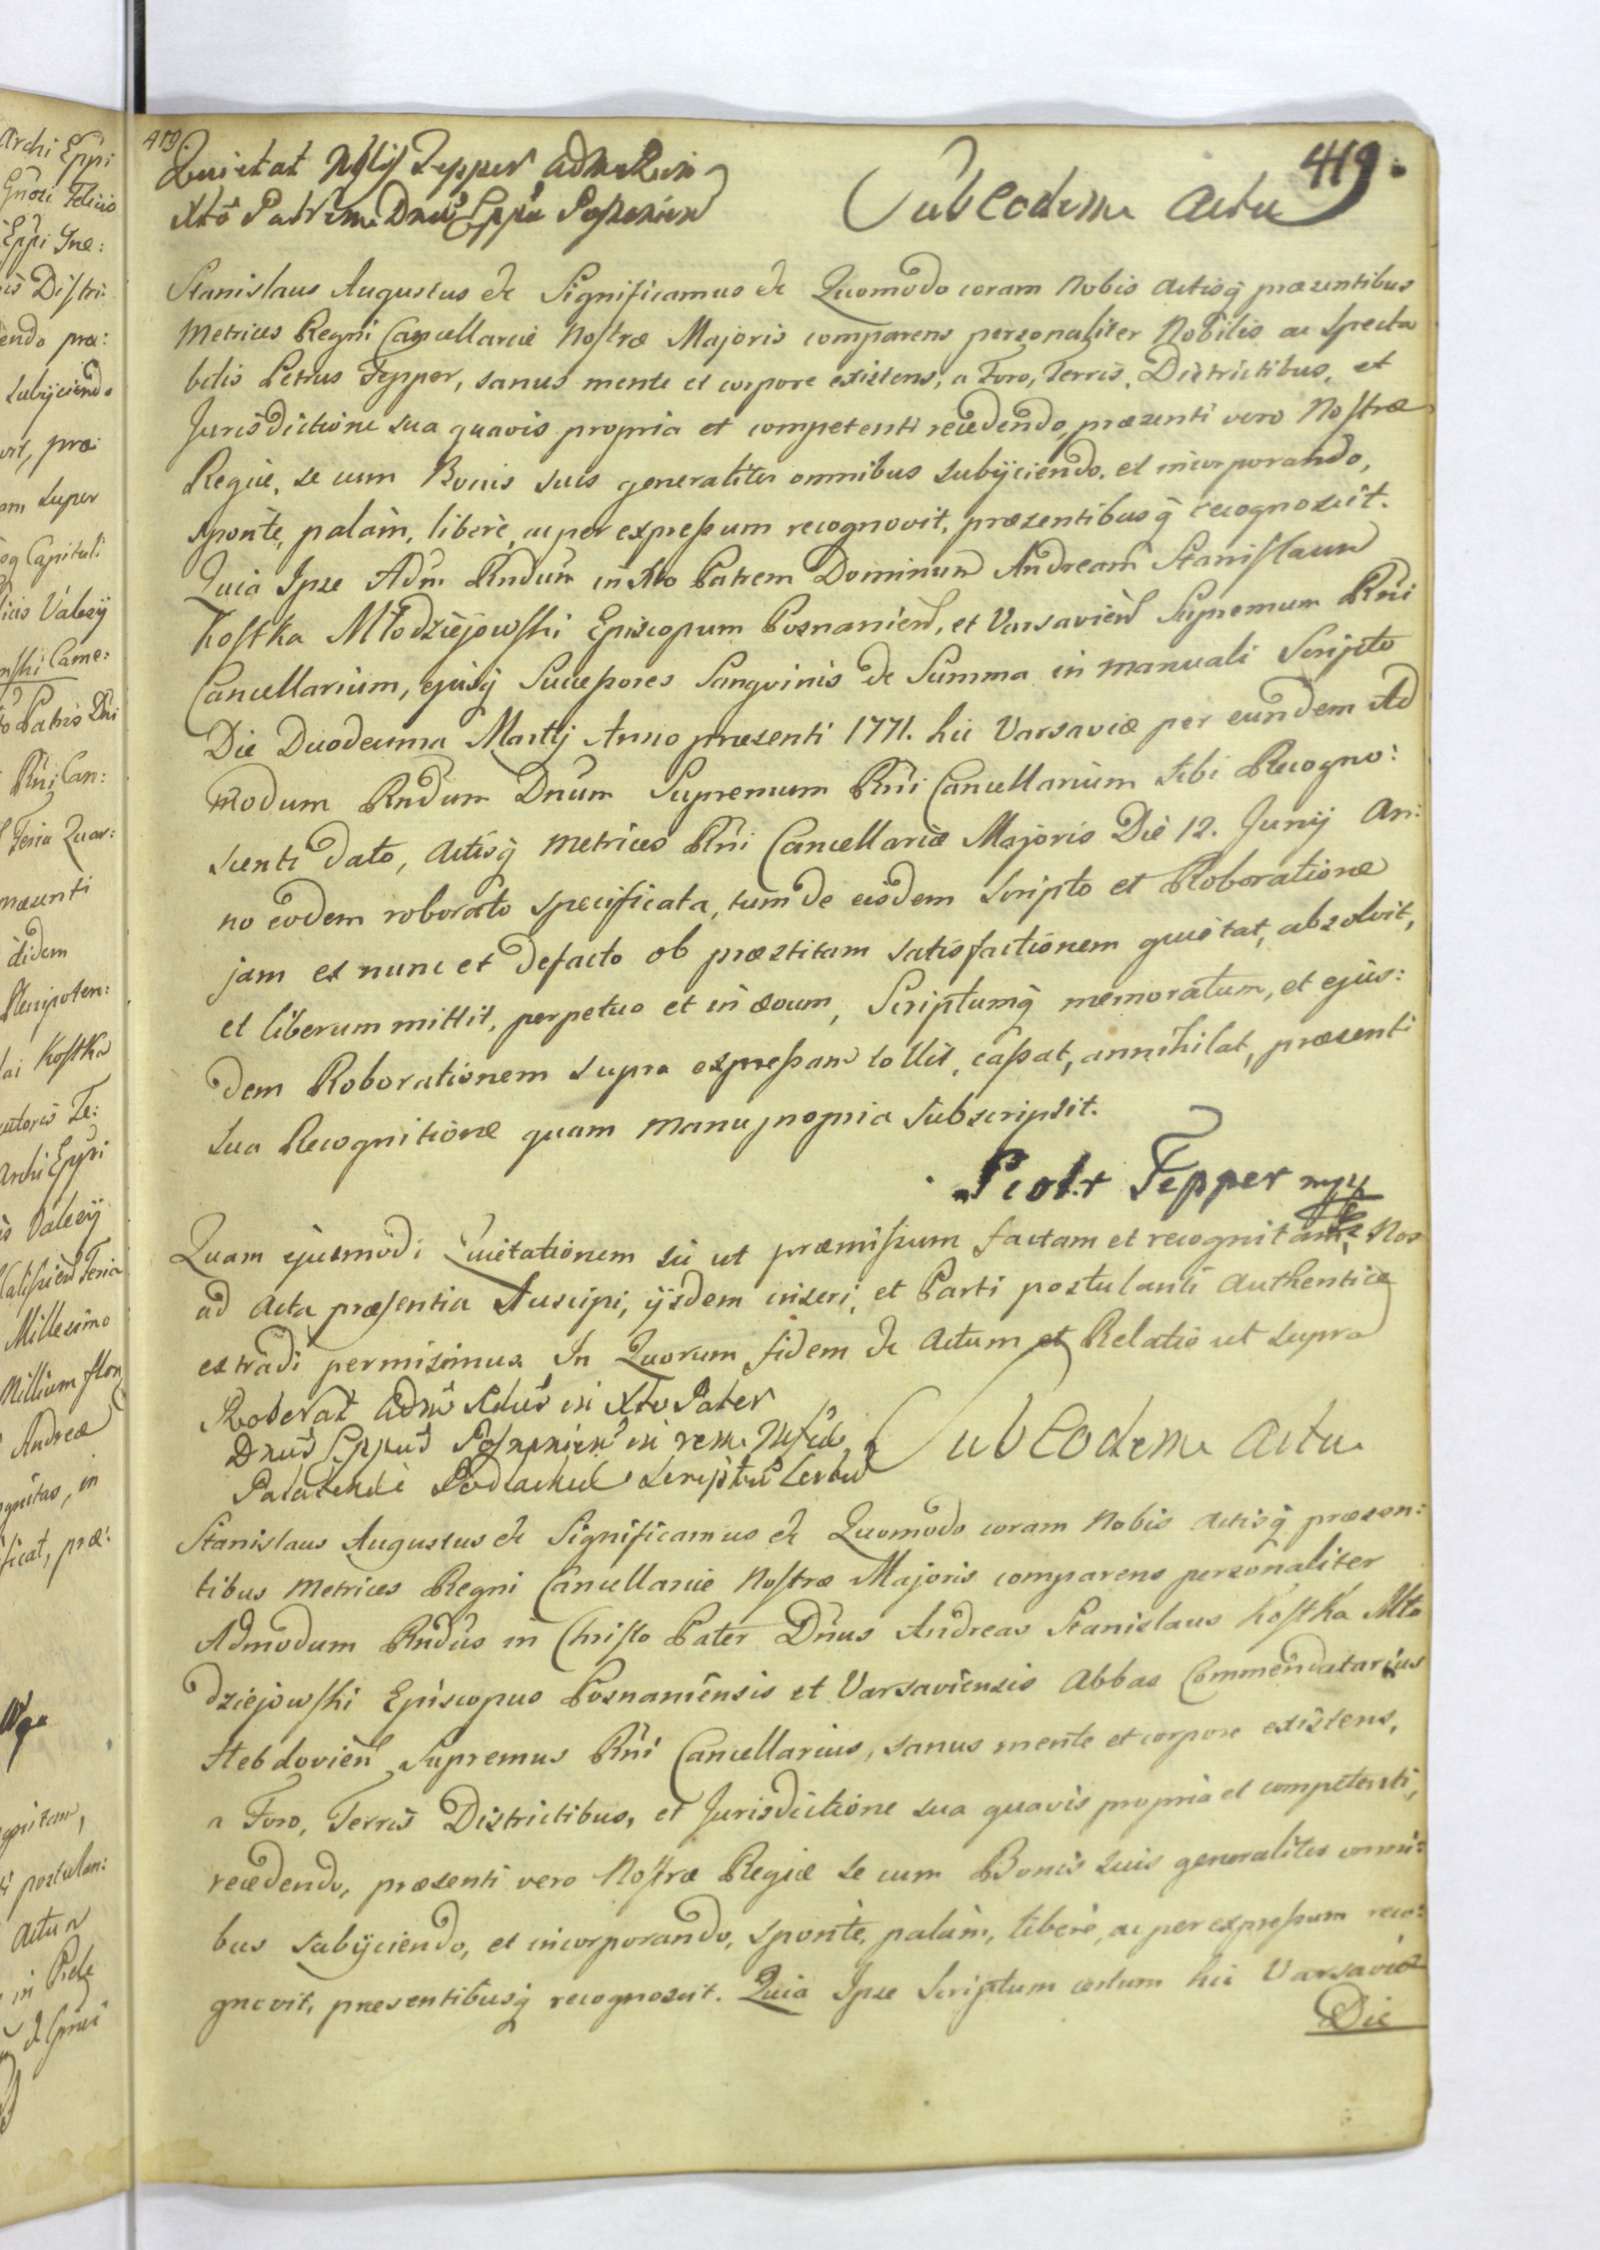 419.
419.
Quietat Nblis Tepper Admo Rndo in
Xto Patrem Dnum Eppum Posnanien
Sub Eodem Actu
Stanislaus Augustus &c Significamus &c Quomodo coram Nobis Actisq præsentibus
Metrices Regni Cancellariæ Nostræ Majoris comparens personaliter Nobilis ac Specta
bilis Petrus Tepper, sanus mente et corpore existens, a Foro, Terris, Districtibus, et
Jurisdictione sua quavis propria et competenti recedendo, præsenti vero Nostræ
Regiæ, se cum Bonis suis generaliter omnibus subijciendo, et incorporando,
sponte, palam, libere, ac per expressum recognovit, præsentibusq recognoscit.
Quia Ipse Adm Rndum in Xto Patrem Dominum Andream Stanislaum
Kostka Młodziejowski Episcopum Posnanien, et Varsavien Supremum Rni
Cancellarium, ejusq Successores Sangvinis de Summa in manuali Scripto
Die Duodecima Martij Anno præsenti 1771. hic Varsaviæ per eundem Ad
modum Rndum Dnum Supremum Rni Cancellarium sibi Recogno:
scenti dato, Actisq Metrices Rni Cancellariæ Majoris Die 12. Junij An:
no eodem roborato specificata, tum de eisdem Scripto et Roboratione
jam ex nunc et defacto ob præstitam satisfactionem quietat, absolvit,
et liberum mittit, perpetuo et in ævum, Scriptumq memoratum, et ejus:
dem Roborationem supra expressam tollit, cassat, annihilat, præsenti
sua Recognitione quam manu propria subscripsit.
Piotr Tepper mp
Quam ejusmodi Quietationem sic ut præmissum factam et recognitam, Nos
ad Acta præsentia Suscipi, ijsdem inseri, et Parti postulanti authentice
extradi permisimus In Quorum fidem &c Actum et Relatio ut supra
Roborat Admo Rndus in Xto Pater
Dnus Eppus Posnanien in rem
Palatinidi Podlachiæ Scriptum Certum
Sub Eodem Actu
Stanislaus Augustus &c Significamus &c Quomodo coram Nobis Actisq præsen:
tibus Metrices Regni Cancellariæ Nostræ Majoris comparens personaliter
Admodum Rndus in Christo Pater Dnus Andreas Stanislaus Kostka Mło
dziejowski Episcopus Posnaniensis et Varsaviensis Abbas Commendatarius
Hebdovien Supremus Rni Cancellarius, sanus mente et corpore existens,
a Foro, Terris Districtibus, et Jurisdictione sua quavis propria et competenti,
recedendo, præsenti vero Nostræ Regiæ se cum Bonis suis generaliter omni:
bus subijciendo, et incorporando, sponte, palam, libere, ac per expressum reco:
gnovit, præsentibusq recognoscit. Quia Ipse Scriptum certum hic Varsaviæ
Die